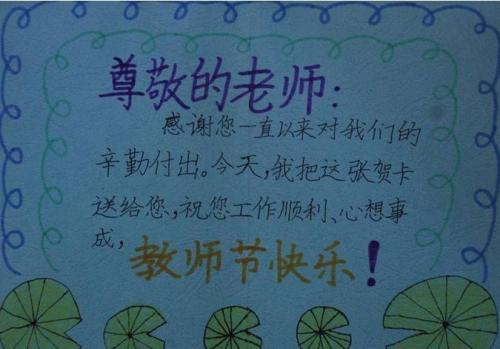 尊敬的老师：
感谢您一直以来对我们的
辛勤付出。今天，我把这张贺卡
送给您，祝您工作顺利、心想事
成，
教师节快乐！